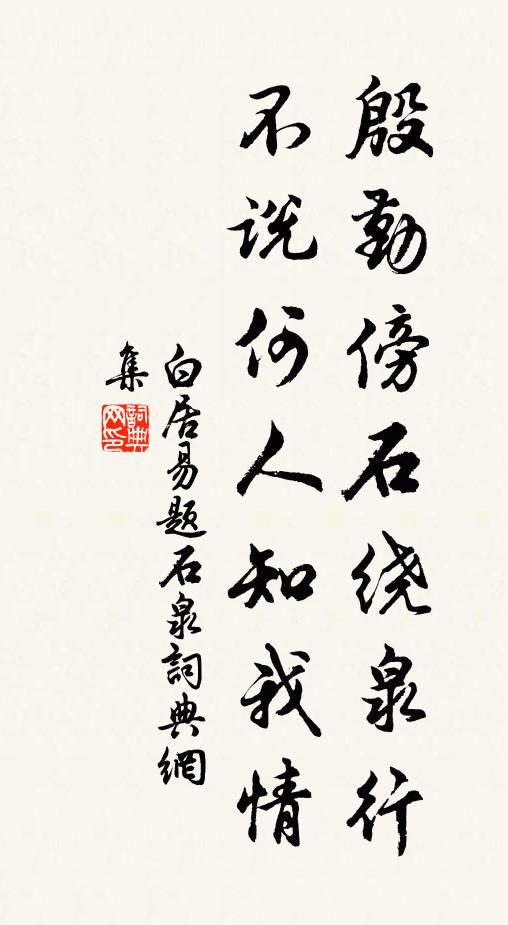 殷勤傍石绕泉行
不说何人知我情
白居易题石泉詞典網
集
詞典
网印